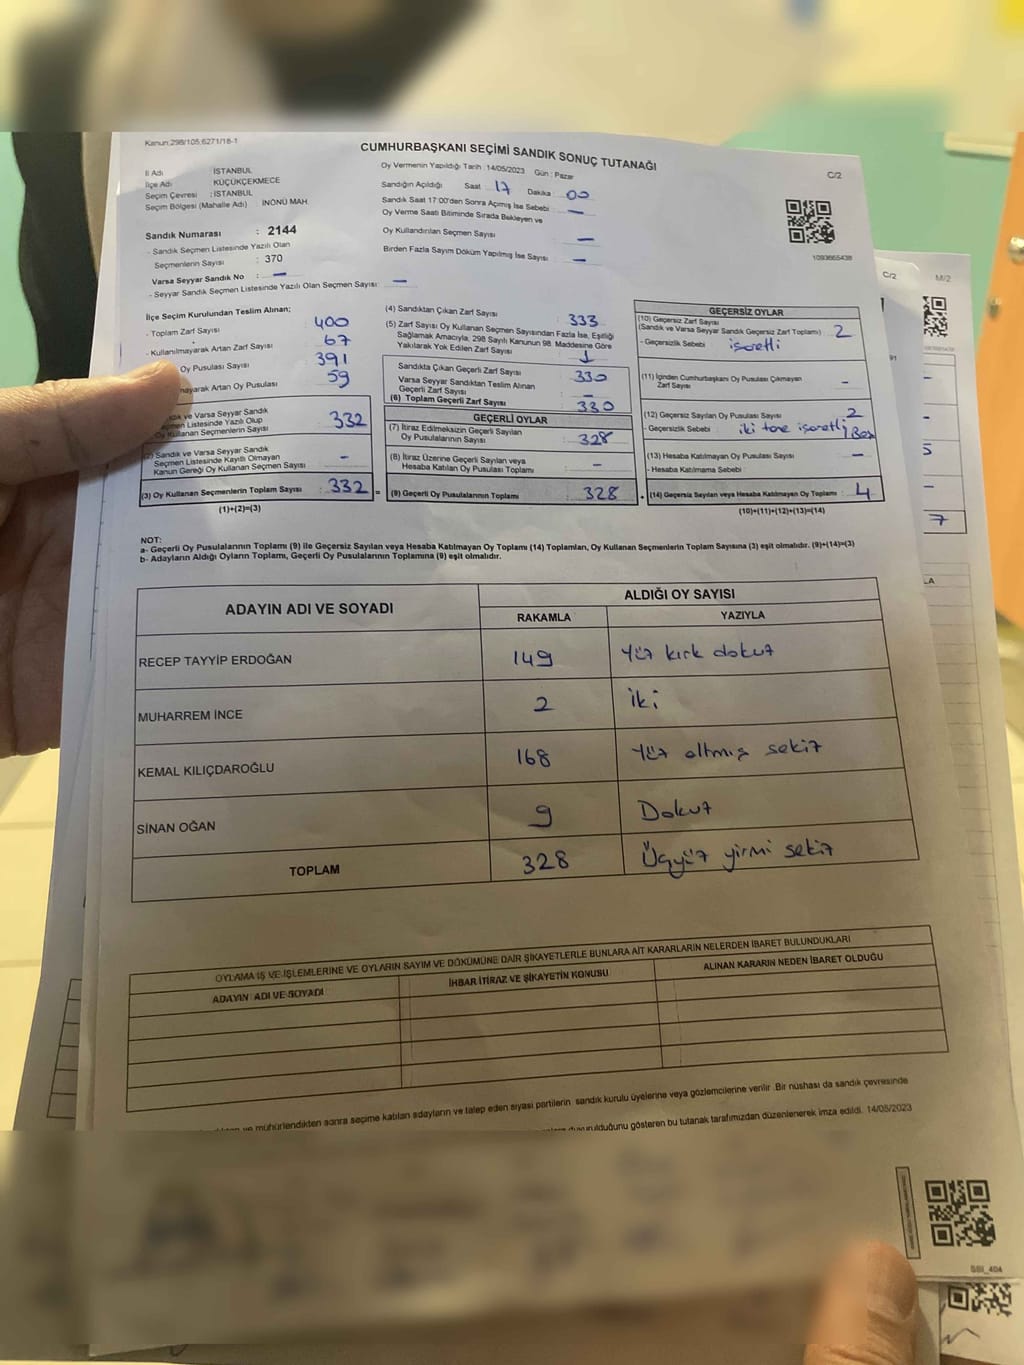 Kanun:298/105;6271/18-1
CUMHURBAŞKANI SEÇİMİ SANDIK SONUÇ TUTANAĞI
C/2
İl Adı : İSTANBUL
İlçe Adı : KÜÇÜKÇEKMECE
Seçim Çevresi : İSTANBUL
Seçim Bölgesi (Mahalle Adı) : İNÖNÜ MAH.
Sandık Numarası : 2144
- Sandık Seçmen Listesinde Yazılı Olan
Seçmenlerin Sayısı : 370
Varsa Seyyar Sandık No : —
- Seyyar Sandık Seçmen Listesinde Yazılı Olan Seçmen Sayısı : —
Oy Vermenin Yapıldığı Tarih : 14/05/2023 Gün : Pazar
Sandığın Açıldığı Saat : 17 Dakika : 00
Sandık Saat 17:00'den Sonra Açılmış İse Sebebi : —
Oy Verme Saati Bitiminde Sırada Bekleyen ve
Oy Kullandırılan Seçmen Sayısı : —
Birden Fazla Sayım Döküm Yapılmış İse Sayısı : —
1093665438
İlçe Seçim Kurulundan Teslim Alınan;
- Toplam Zarf Sayısı : 400
- Kullanılmayarak Artan Zarf Sayısı : 67
Oy Pusulası Sayısı : 391
mayarak Artan Oy Pusulası : 59
ve Varsa Seyyar Sandık
Listesinde Yazılı Olup
Oy Kullanan Seçmenlerin Sayısı : 332
(2) Sandık ve Varsa Seyyar Sandık
Seçmen Listesinde Kayıtlı Olmayan
Kanun Gereği Oy Kullanan Seçmen Sayısı : -
(3) Oy Kullanan Seçmenlerin Toplam Sayısı : 332 =
(1)+(2)=(3)
(4) Sandıktan Çıkan Zarf Sayısı : 333
(5) Zarf Sayısı Oy Kullanan Seçmen Sayısından Fazla İse, Eşitliği
Sağlamak Amacıyla, 298 Sayılı Kanunun 98. Maddesine Göre
Yakılarak Yok Edilen Zarf Sayısı : 1
Sandıkta Çıkan Geçerli Zarf Sayısı : 330
Varsa Seyyar Sandıktan Teslim Alınan
Geçerli Zarf Sayısı : —
(6) Toplam Geçerli Zarf Sayısı : 330
GEÇERLİ OYLAR
(7) İtiraz Edilmeksizin Geçerli Sayılan
Oy Pusulalarının Sayısı : 328
(8) İtiraz Üzerine Geçerli Sayılan veya
Hesaba Katılan Oy Pusulası Toplamı : -
(9) Geçerli Oy Pusulalarının Toplamı : 328 +
GEÇERSİZ OYLAR
(10) Geçersiz Zarf Sayısı
(Sandık ve Varsa Seyyar Sandık Geçersiz Zarf Toplamı) : 2
- Geçersizlik Sebebi : işaretli
(11) İçinden Cumhurbaşkanı Oy Pusulası Çıkmayan
Zarf Sayısı : -
(12) Geçersiz Sayılan Oy Pusulası Sayısı : 2
- Geçersizlik Sebebi : iki tane işaretli
(13) Hesaba Katılmayan Oy Pusulası Sayısı : —
- Hesaba Katılmama Sebebi :
(14) Geçersiz Sayılan veya Hesaba Katılmayan Oy Toplamı : 4
(10)+(11)+(12)+(13)=(14)
NOT:
a- Geçerli Oy Pusulalarının Toplamı (9) ile Geçersiz Sayılan veya Hesaba Katılmayan Oy Toplamı (14) Toplamları, Oy Kullanan Seçmenlerin Toplam Sayısına (3) eşit olmalıdır. (9)+(14)=(3)
b- Adayların Aldığı Oyların Toplamı, Geçerli Oy Pusulalarının Toplamına (9) eşit olmalıdır.
ADAYIN ADI VE SOYADI
ALDIĞI OY SAYISI
RAKAMLA YAZIYLA
RECEP TAYYİP ERDOĞAN 149 Yüz kırk dokuz
MUHARREM İNCE 2 iki
KEMAL KILIÇDAROĞLU 168 Yüz altmış sekiz
SİNAN OĞAN 9 Dokuz
TOPLAM 328 Üçyüz yirmi sekiz
OYLAMA İŞ VE İŞLEMLERİNE VE OYLARIN SAYIM VE DÖKÜMÜNE DAİR ŞİKAYETLERLE BUNLARA AİT KARARLARIN NELERDEN İBARET BULUNDUKLARI
ADAYIN ADI VE SOYADI İHBAR İTİRAZ VE ŞİKAYETİN KONUSU ALINAN KARARIN NEDEN İBARET OLDUĞU
ve mühürlendikten sonra seçime katılan adayların ve talep eden siyasi partilerin, sandık kurulu üyelerine veya gözlemcilerine verilir. Bir nüshası da sandık çevresinde
duyurulduğunu gösteren bu tutanak tarafımızdan düzenlenerek imza edildi. 14/05/2023
SSI_404
C/2
M/2
91
5
7
LA